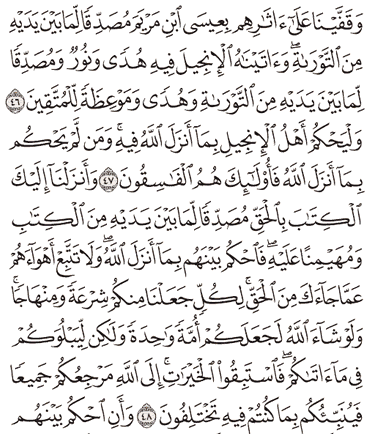 وَقَفَّيْنَا عَلَىٰٓ ءَاثَٰرِهِم بِعِيسَى ٱبْنِ مَرْيَمَ مُصَدِّقًا لِّمَا بَيْنَ يَدَيْهِ
مِنَ ٱلتَّوْرَىٰةِ ۖ وَءَاتَيْنَٰهُ ٱلْإِنجِيلَ فِيهِ هُدًى وَنُورٌ وَمُصَدِّقًا
لِّمَا بَيْنَ يَدَيْهِ مِنَ ٱلتَّوْرَىٰةِ وَهُدًى وَمَوْعِظَةً لِّلْمُتَّقِينَ ٤٦
وَلْيَحْكُمْ أَهْلُ ٱلْإِنجِيلِ بِمَآ أَنزَلَ ٱللَّهُ فِيهِ ۚ وَمَن لَّمْ يَحْكُم
بِمَآ أَنزَلَ ٱللَّهُ فَأُو۟لَٰٓئِكَ هُمُ ٱلْفَٰسِقُونَ ٤٧ وَأَنزَلْنَآ إِلَيْكَ
ٱلْكِتَٰبَ بِٱلْحَقِّ مُصَدِّقًا لِّمَا بَيْنَ يَدَيْهِ مِنَ ٱلْكِتَٰبِ
وَمُهَيْمِنًا عَلَيْهِ ۖ فَٱحْكُم بَيْنَهُم بِمَآ أَنزَلَ ٱللَّهُ ۖ وَلَا تَتَّبِعْ أَهْوَآءَهُمْ
عَمَّا جَآءَكَ مِنَ ٱلْحَقِّ ۚ لِكُلٍّ جَعَلْنَا مِنكُمْ شِرْعَةً وَمِنْهَاجًا ۚ
وَلَوْ شَآءَ ٱللَّهُ لَجَعَلَكُمْ أُمَّةً وَٰحِدَةً وَلَٰكِن لِّيَبْلُوَكُمْ
فِى مَآ ءَاتَىٰكُمْ ۖ فَٱسْتَبِقُوا۟ ٱلْخَيْرَٰتِ ۚ إِلَى ٱللَّهِ مَرْجِعُكُمْ جَمِيعًا
فَيُنَبِّئُكُم بِمَا كُنتُمْ فِيهِ تَخْتَلِفُونَ ٤٨ وَأَنِ ٱحْكُم بَيْنَهُم